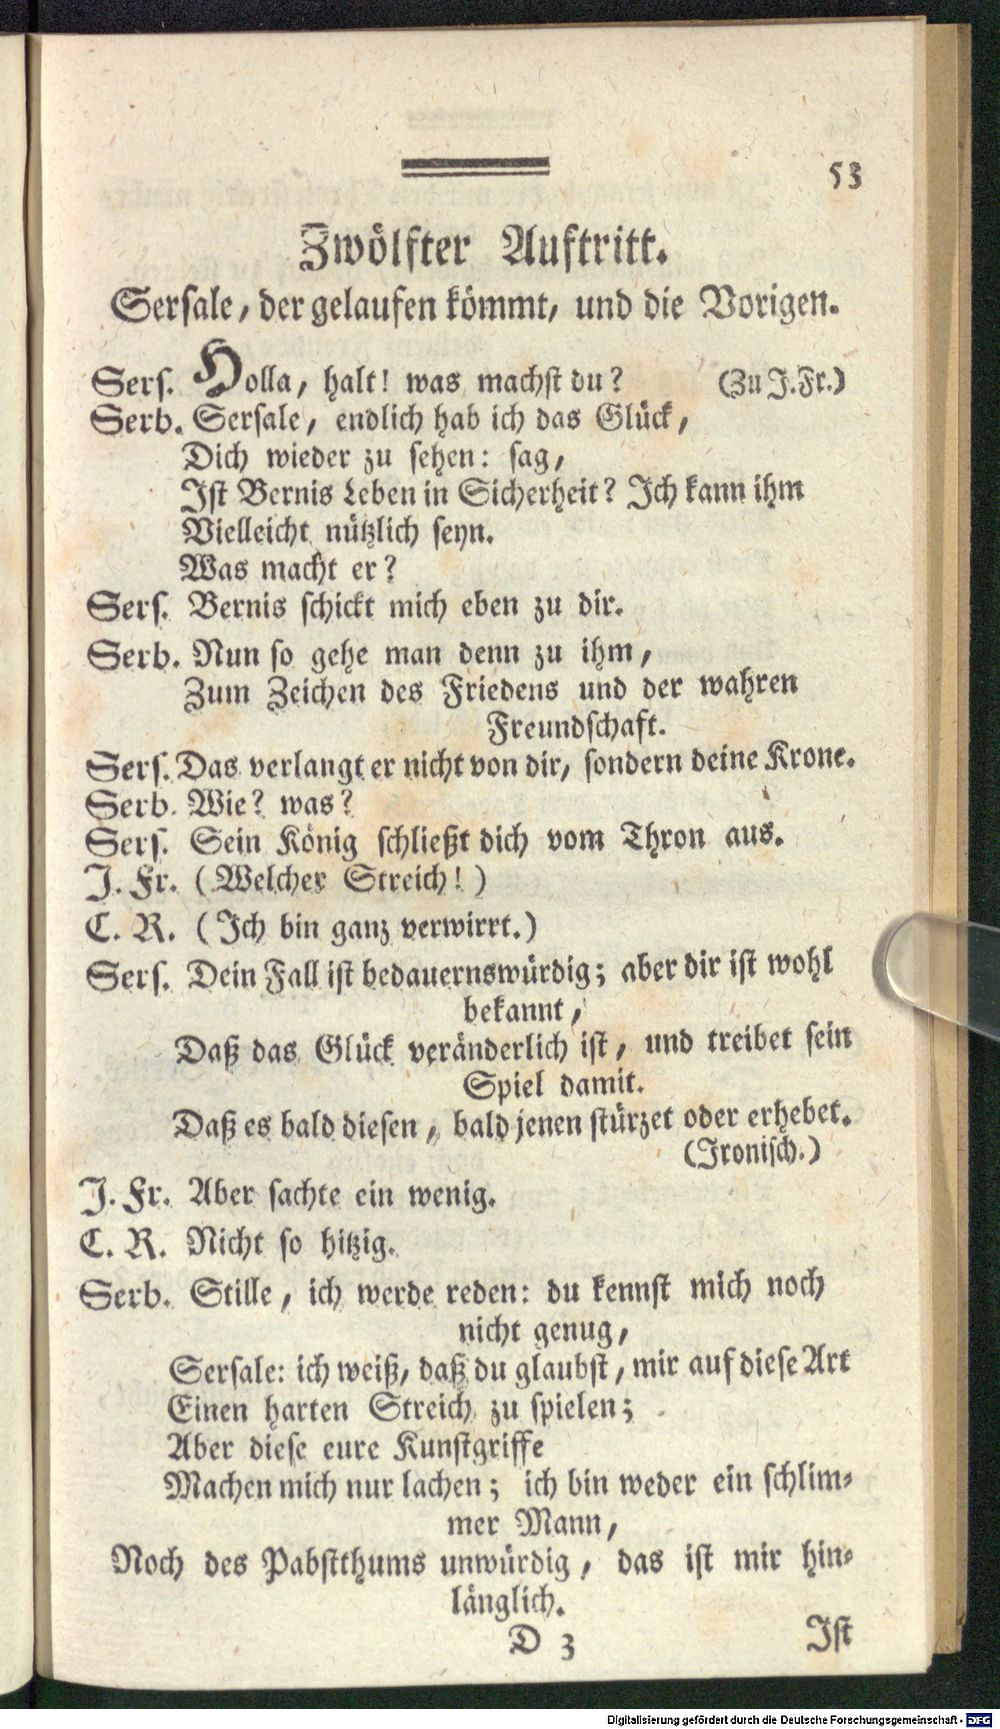 53
Zwölfter Auftritt.
Sersale, der gelaufen kömmt, und die Vorigen.
Sers. Holla, halt! was machst du? (Zu J. Fr.)
Serb. Sersale, endlich hab ich das Glück,
Dich wieder zu sehen: sag,
Ist Bernis Leben in Sicherheit? Ich kann ihm
Vielleicht nützlich seyn.
Was macht er?
Sers. Bernis schickt mich eben zu dir.
Serb. Nun so gehe man denn zu ihm,
Zum Zeichen des Friedens und der wahren
Freundschaft.
Sers. Das verlangt er nicht von dir, sondern deine Krone.
Serb. Wie? was?
Sers. Sein König schließt dich vom Thron aus.
J. Fr. (Welcher Streich!)
C. R. (Ich bin ganz verwirrt.)
Sers. Dein Fall ist bedauernswürdig; aber dir ist wohl
bekannt,
Daß das Glück veränderlich ist, und treibet sein
Spiel damit.
Daß es bald diesen, bald jenen stürzet oder erhebet.
(Ironisch.)
J. Fr. Aber sachte ein wenig.
C. R. Nicht so hitzig.
Serb. Stille, ich werde reden: du kennst mich noch
nicht genug,
Sersale: ich weiß, daß du glaubst, mir auf diese Art
Einen harten Streich zu spielen;
Aber diese eure Kunstgriffe
Machen mich nur lachen; ich bin weder ein schlim-
mer Mann,
Noch des Pabstthums unwürdig, das ist mir hin-
länglich.
D 3 Ist
Digitalisierung gefördert durch die Deutsche Forschungsgemeinschaft - DFG